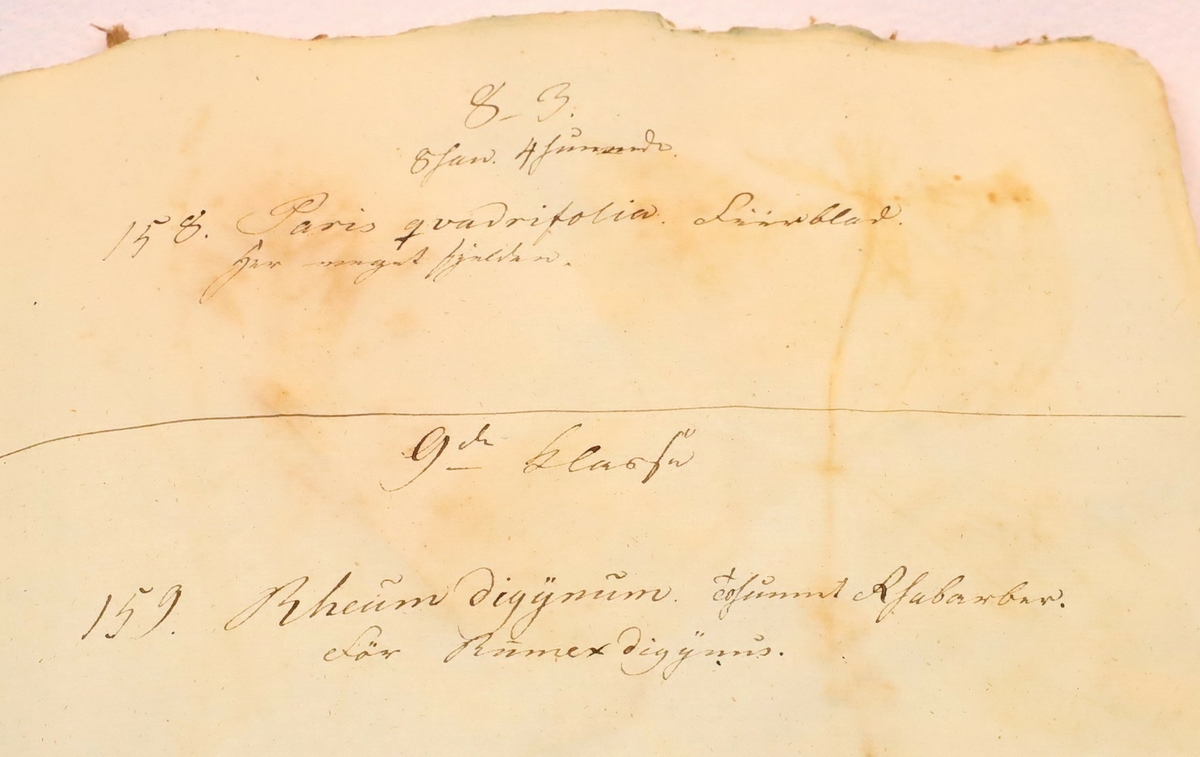 8–3.
8han. 4hunnede.
158. Paris qvadrifolia. Fiirblad.
Her meget sjelden.
9de Klasse
159. Rheum digÿnum. Tohunnet Rhabarber.
För Rumex digÿnus.